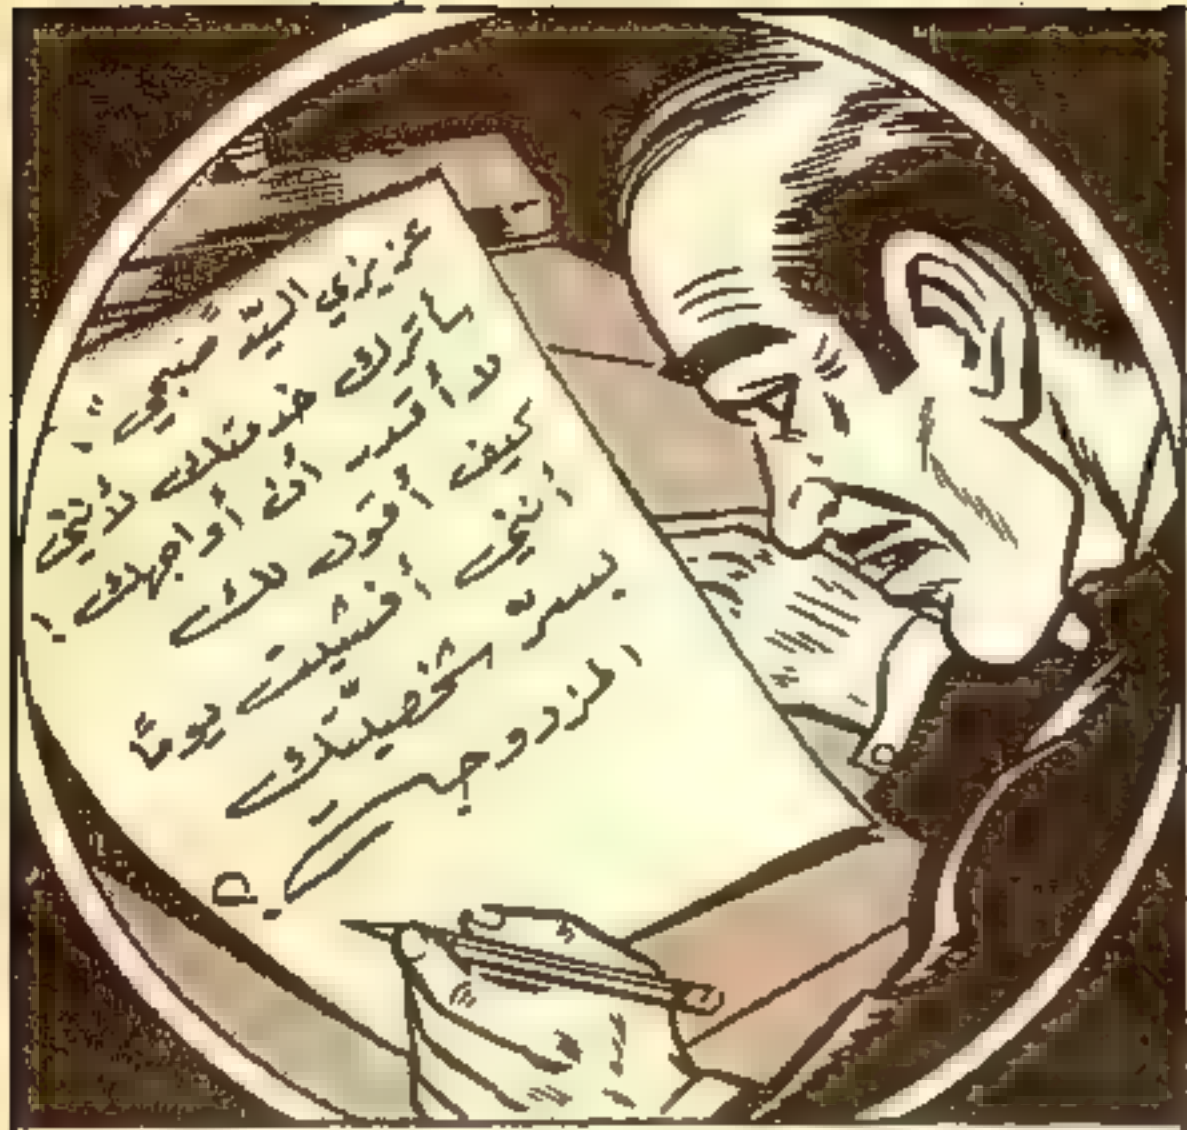 عزيزي السيّد صُبحي :
سأترك خدمتك لأنني
لا أقدر أن أواجهك !
كيف أقول لك
أنني أفشيت يومًا
بسرّ شخصيّتك
المزدوجة !